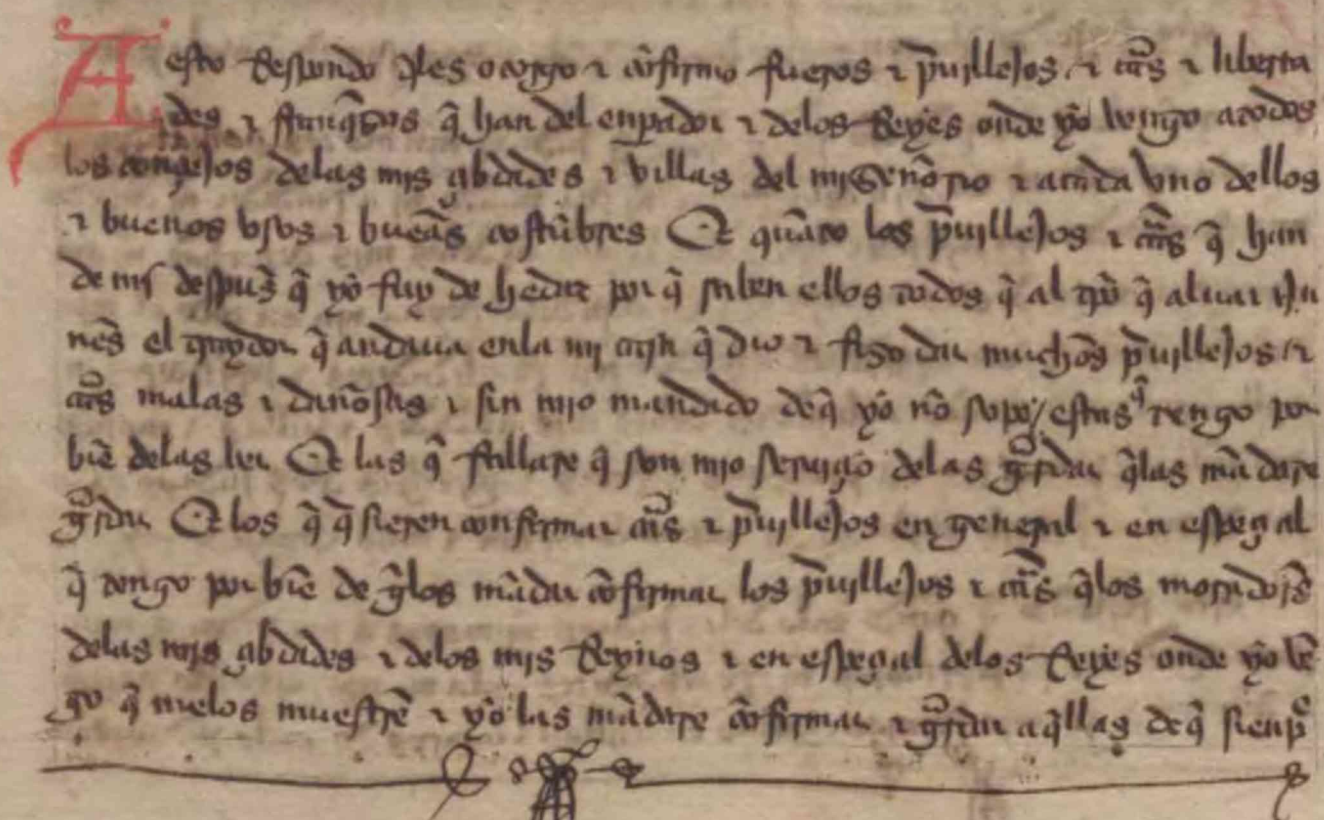 A esto Respondo q̃les otorgo ⁊ cõfirmo fueros ⁊ p̃uillejos ⁊ cãs ⁊ liberta
des ⁊ franq̃zas q̃ han del enp̃ador ⁊ delos Reyes onde yo vengo atodos
los conçejos delas mis çibdades ⁊ villas del mi señorio ⁊ acada vno dellos
⁊ buenos vsos ⁊ buẽas costũbres Et quãto los p̃uillejos ⁊ cãs q̃ han
de mi despues q̃ yo fuy de hedat por q̃ saben ellos todos q̃ al tpõ q̃ aluar nu
nes el traydor q̃ andaua enla mi casa q̃ dio ⁊ fizo dar muchos p̃uillejos ⁊
cãs malas ⁊ dañosas ⁊ sin mio mandado deq̃ yo nõ sope / estas q̃ tengo por
biẽ delas ver Et las q̃ fallare q̃ son mio seruiçio delas g̃rdar q̃las mãdare
g̃rdar Et los q̃ q̃sieren confirmar cãs ⁊ p̃uillejos en general ⁊ en espeçial
q̃ tengo por biẽ de g̃los mãdar cõfirmar los p̃uillejos ⁊ cãs q̃los moradores
delas mis çibdades ⁊ delos mis Reynos ⁊ en espeçial delos Reyes onde yo vẽ
go q̃ melos muestrẽ ⁊ yo las mãdare cõfirmar ⁊ g̃rdar aq̃llas deq̃ sienp̃